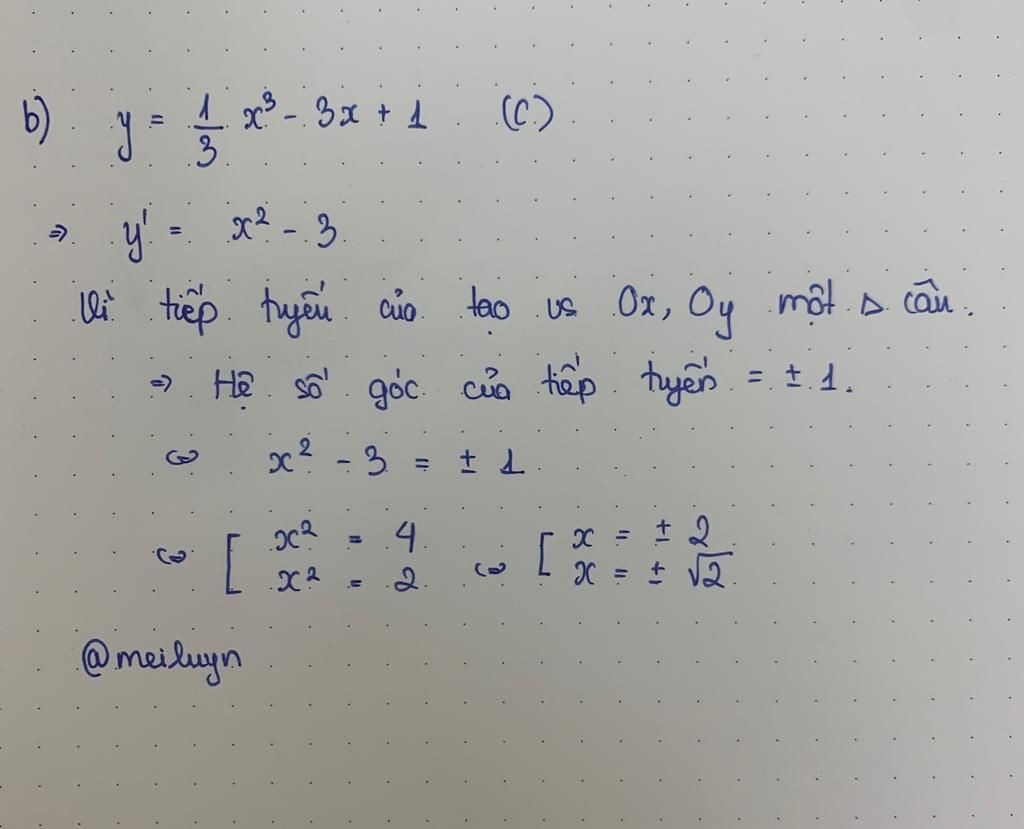 b) y = 1/3 x³ - 3x + 1 (C)
⇒ y' = x² - 3
Vì tiếp tuyến của tạo vs Ox, Oy một Δ cân.
⇒ Hệ số góc của tiếp tuyến = ± 1.
⇔ x² - 3 = ± 1
⇔ [ x² = 4 ⇔ [ x = ± 2
x² = 2 x = ± √2
@meiluyn